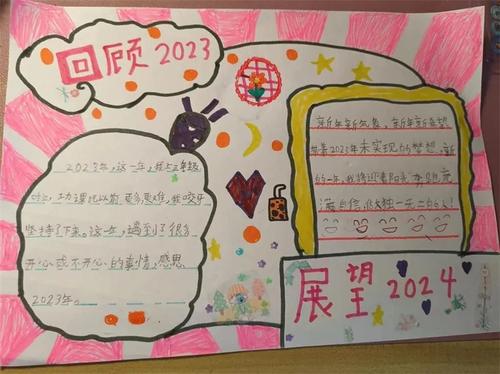 回顾2023
2023年,这一年,我上五年级
功课比以前更多更难,我咬牙
坚持了下来。这一年,遇到了很多
开心或不开心的事情,感恩
2023年。
新年新气象,新年新希望
带着2023年未实现的梦想,新
的一年,我将迎着阳光,勇敢前
满自信,做独一无二的人!
展望2024